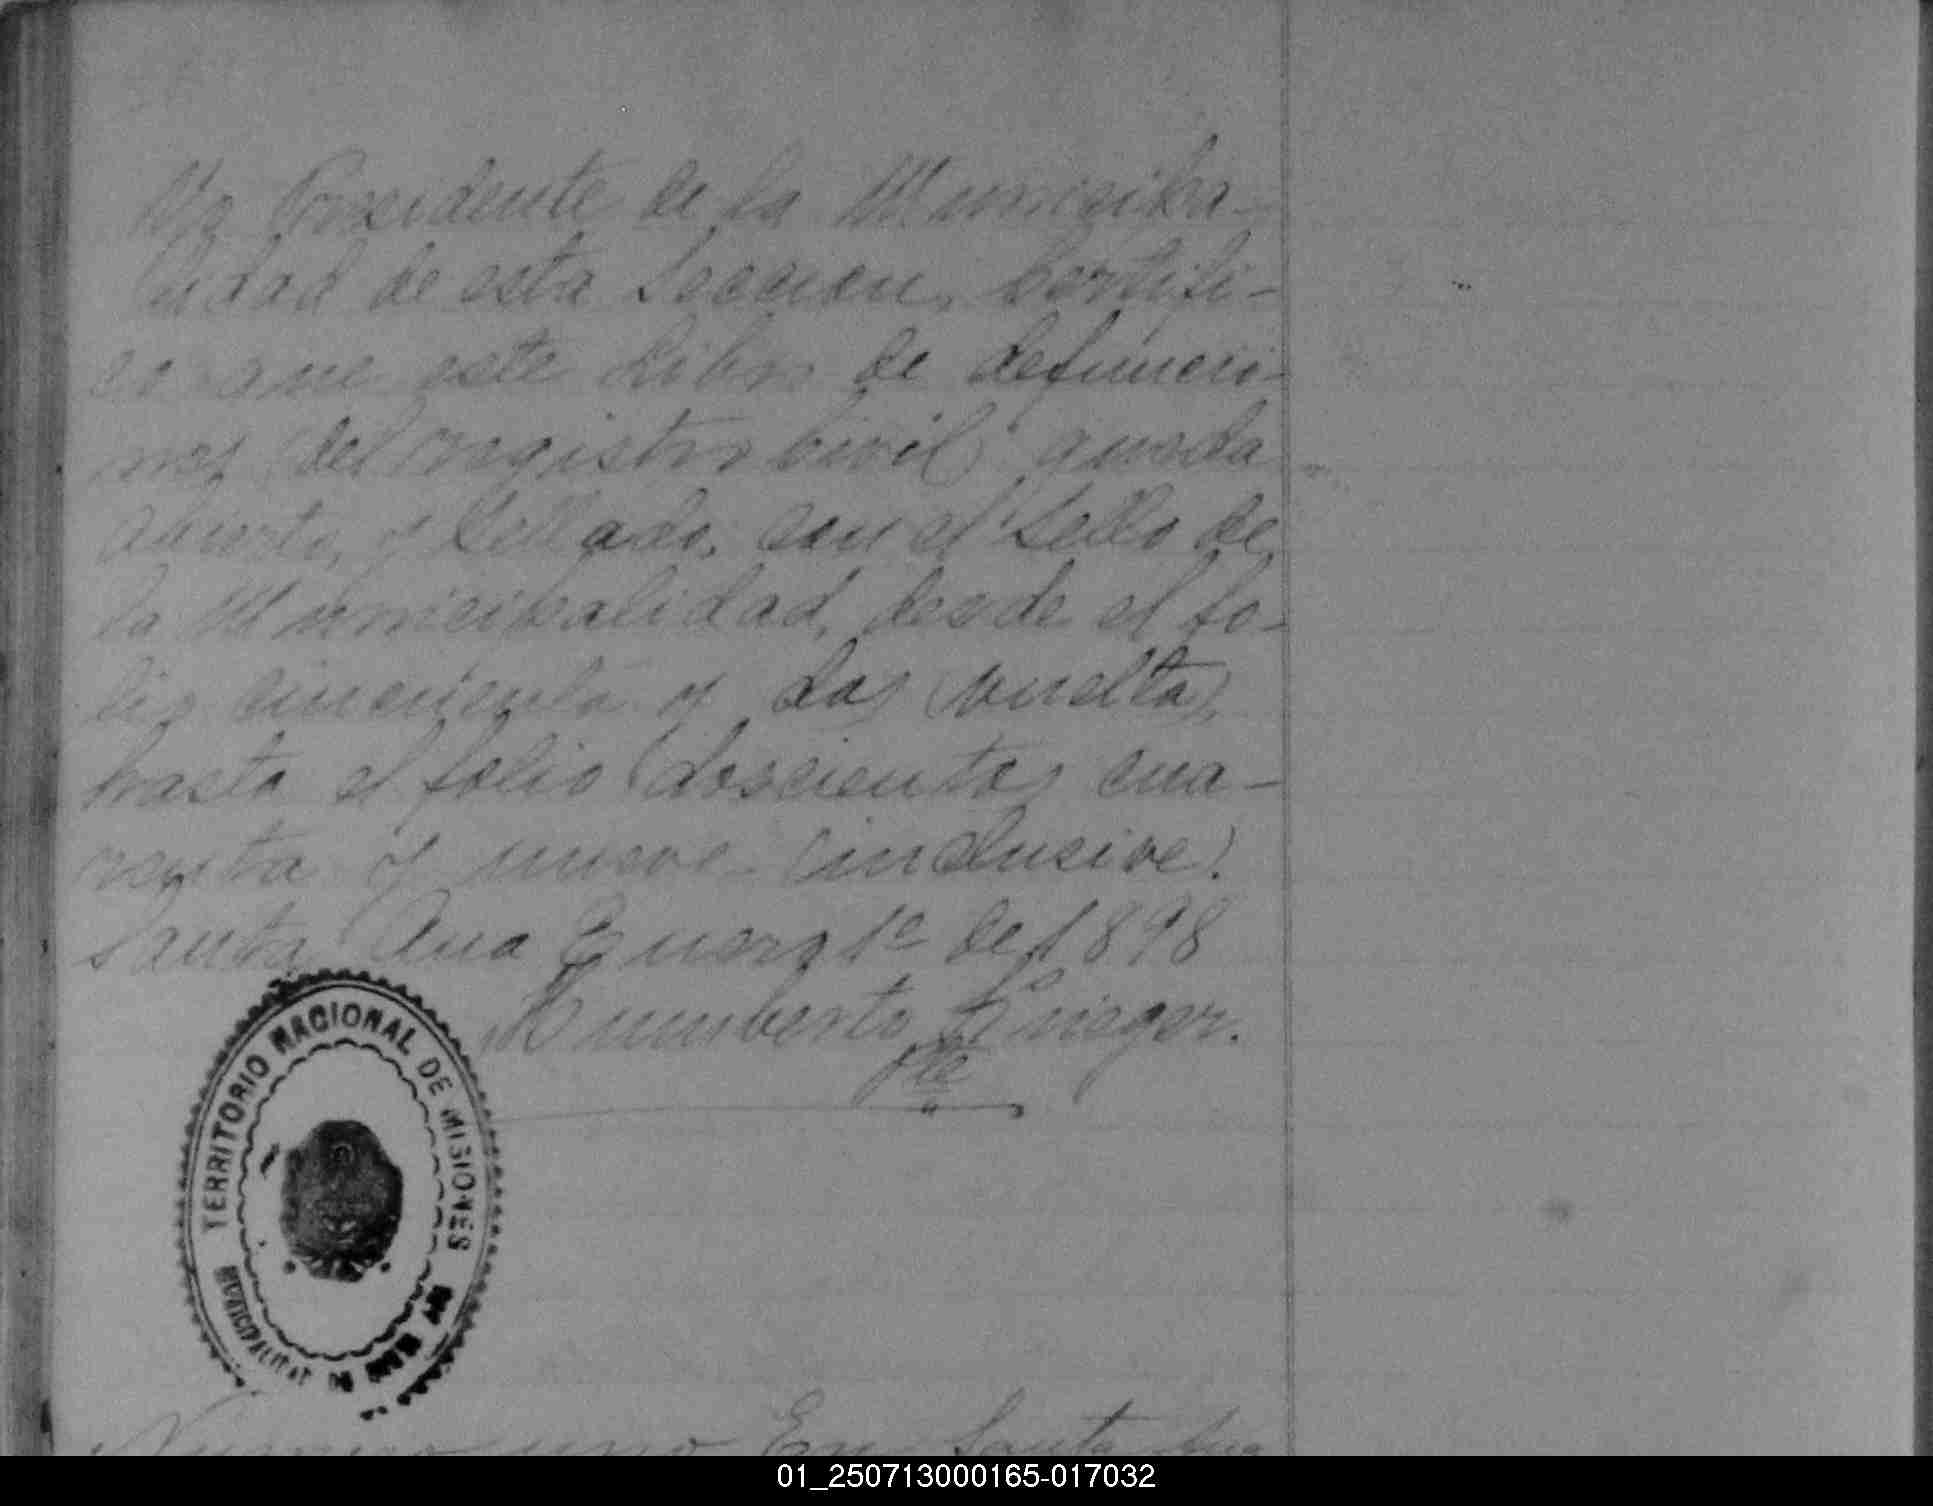 Yo Presidente de la Municipa-
lidad de esta Seccion, Certifi-
co que este Libro de defuncio-
nes del registro Civil queda
abierto, y Sellado, con el Sello de
la Municipalidad, desde el fo-
lio cincuenta y dos (vuelta),
hasta el folio (doscientos cua-
renta y nueve (inclusive).
Santa Ana Enero 1º de 1898
Humberto Krieger.
Pte
TERRITORIO NACIONAL DE MISIONES
MUNICIPALIDAD DE
Numero uno En Santa Ana
01_250713000165-017032